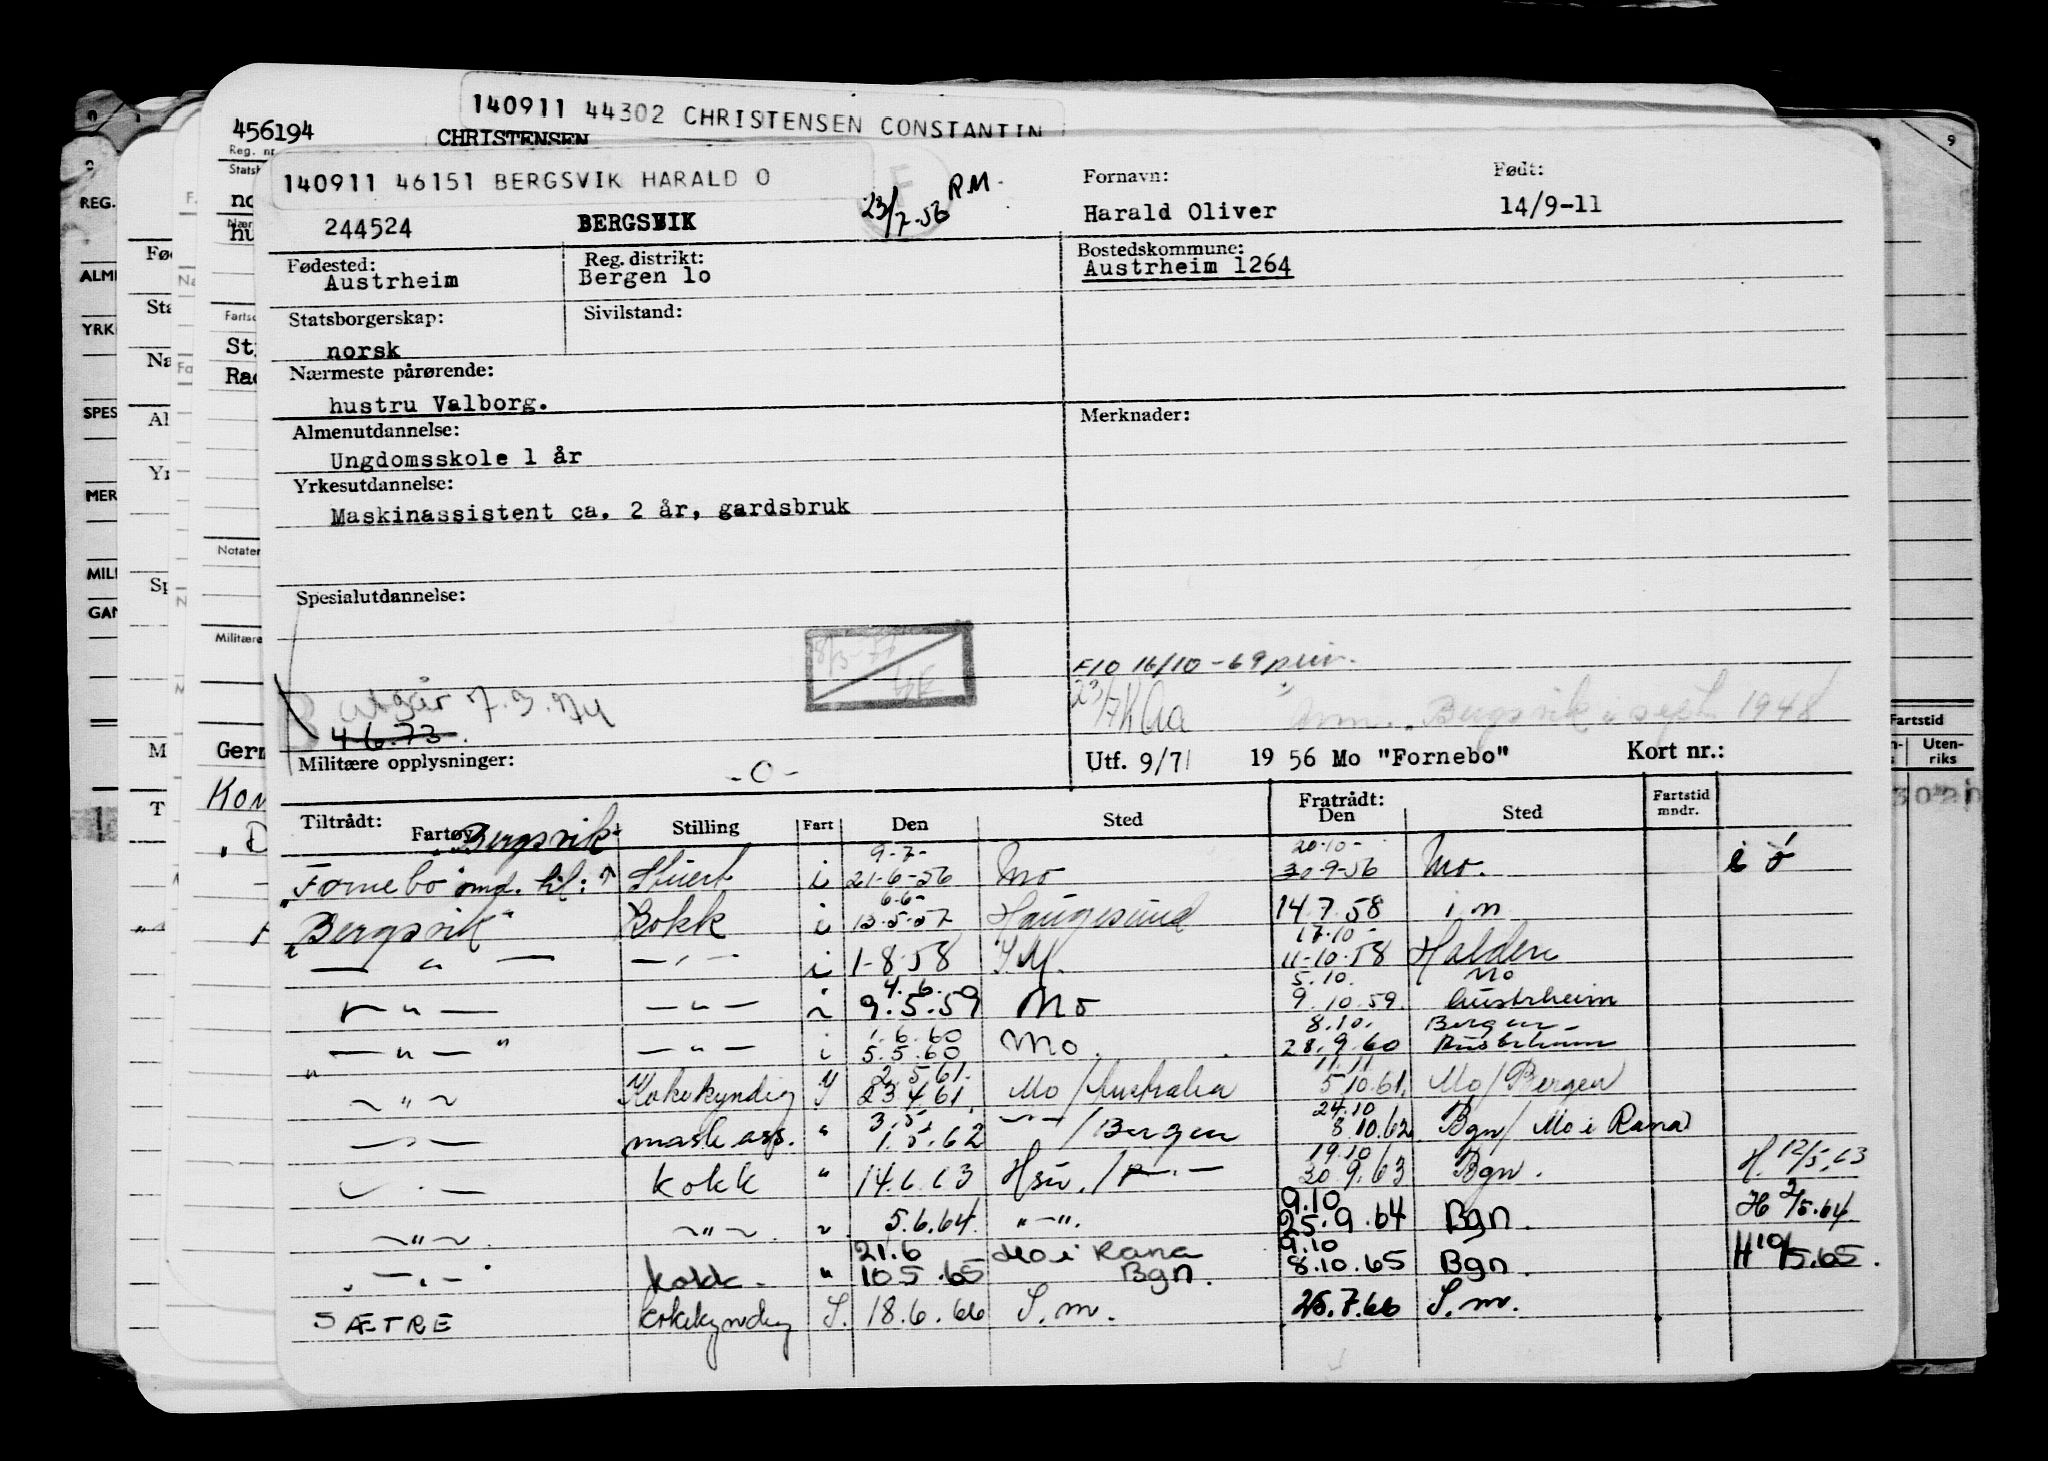 140911 44302 CHRISTENSEN CONSTANTIN
456194 CHRISTENSEN
Reg. nr
140911 46151 BERGSVIK HARALD O
23/7-56 R.M.
Fornavn: Født:
244524 BERGSVIK Harald Oliver 14/9-11
Fødested: Reg. distrikt: Bostedskommune:
Austrheim Bergen 1o Austrheim 1264
Statsborgerskap: Sivilstand:
norsk
Nærmeste pårørende:
hustru Valborg.
Almenutdannelse: Merknader:
Ungdomsskole 1 år
Yrkesutdannelse:
Maskinassistent ca. 2 år, gardsbruk
Spesialutdannelse:
F10 16/10-69
utgår 7.3.974
Bergsvik i sept 1948
4.6.73.
Militære opplysninger: -0- Utf. 9/71 1956 Mo "Fornebo" Kort nr.:
Tiltrådt: Fartøy Stilling Fart Den Sted Fratrådt: Den Sted Fartstid mndr.
"Bergsvik"
9-7- 20.10-
"Fornebo" omd. til: Stuert i 21-6-56 Mo 30-9-56 Mo. i ø
6.6-
"Bergsvik" Kokk i 13-5-57 Haugesund 14.7.58 i m
17.10-
— " — —"— i 1-8-58 11-10.58 Halden
4.6. 5.10. Mo
— " — —"— 9.5.59 Mo 9.10.59. Austrheim
1.6.60 8.10. Bergen
— " — " —"— i 5.5.60 Mo. 28.9.60 Austrheim
2.5.61. 11.11
" — " — Kokekyndig 23.4.61. Mo/Australia 5.10.61. Mo/Bergen
3.5. 24.10
— " — mask.ass. " 1.5.62 —"—/Bergen 8.10.62 Bgn/ Mo i Rana
19.10
— " — kokk " 14.6.63 30.9.63 Bgn. H. 12/5.63
9.10
— " — —"— " 5.6.64. "—". 25.9.64 Bgn. H 2/5.64
21.6 Mo i Rana 9.10
" — " — kokk - " 10.5.65 Bgn. 8.10.65 Bgn. H 10/5.65.
SÆTRE kokekyndig S. 18.6.66 S.m. 26.7.66 S.m.
REG.
ALM
YRK
SPES
MER
MIL
GAN
Notater
Militære
Germ
Fartstid
Uten-
riks
9